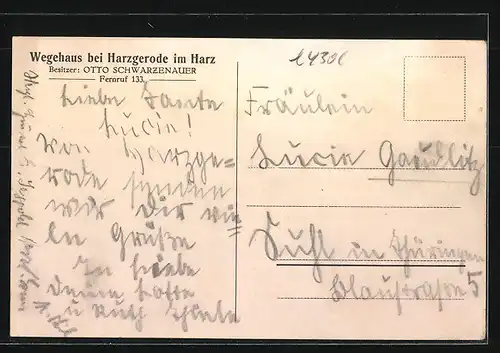 Wegehaus bei Harzgerode im Harz
Besitzer: OTTO SCHWARZENAUER
Fernruf 133
Liebe Tante
Lucie!
Von Harzge-
rode senden
wir Dir vie-
le Grüße
In Liebe
Deine Lotte
u Ruth
Fräulein
Lucie Gaudlitz
Suhl in Thüringen
Blaustraße 5